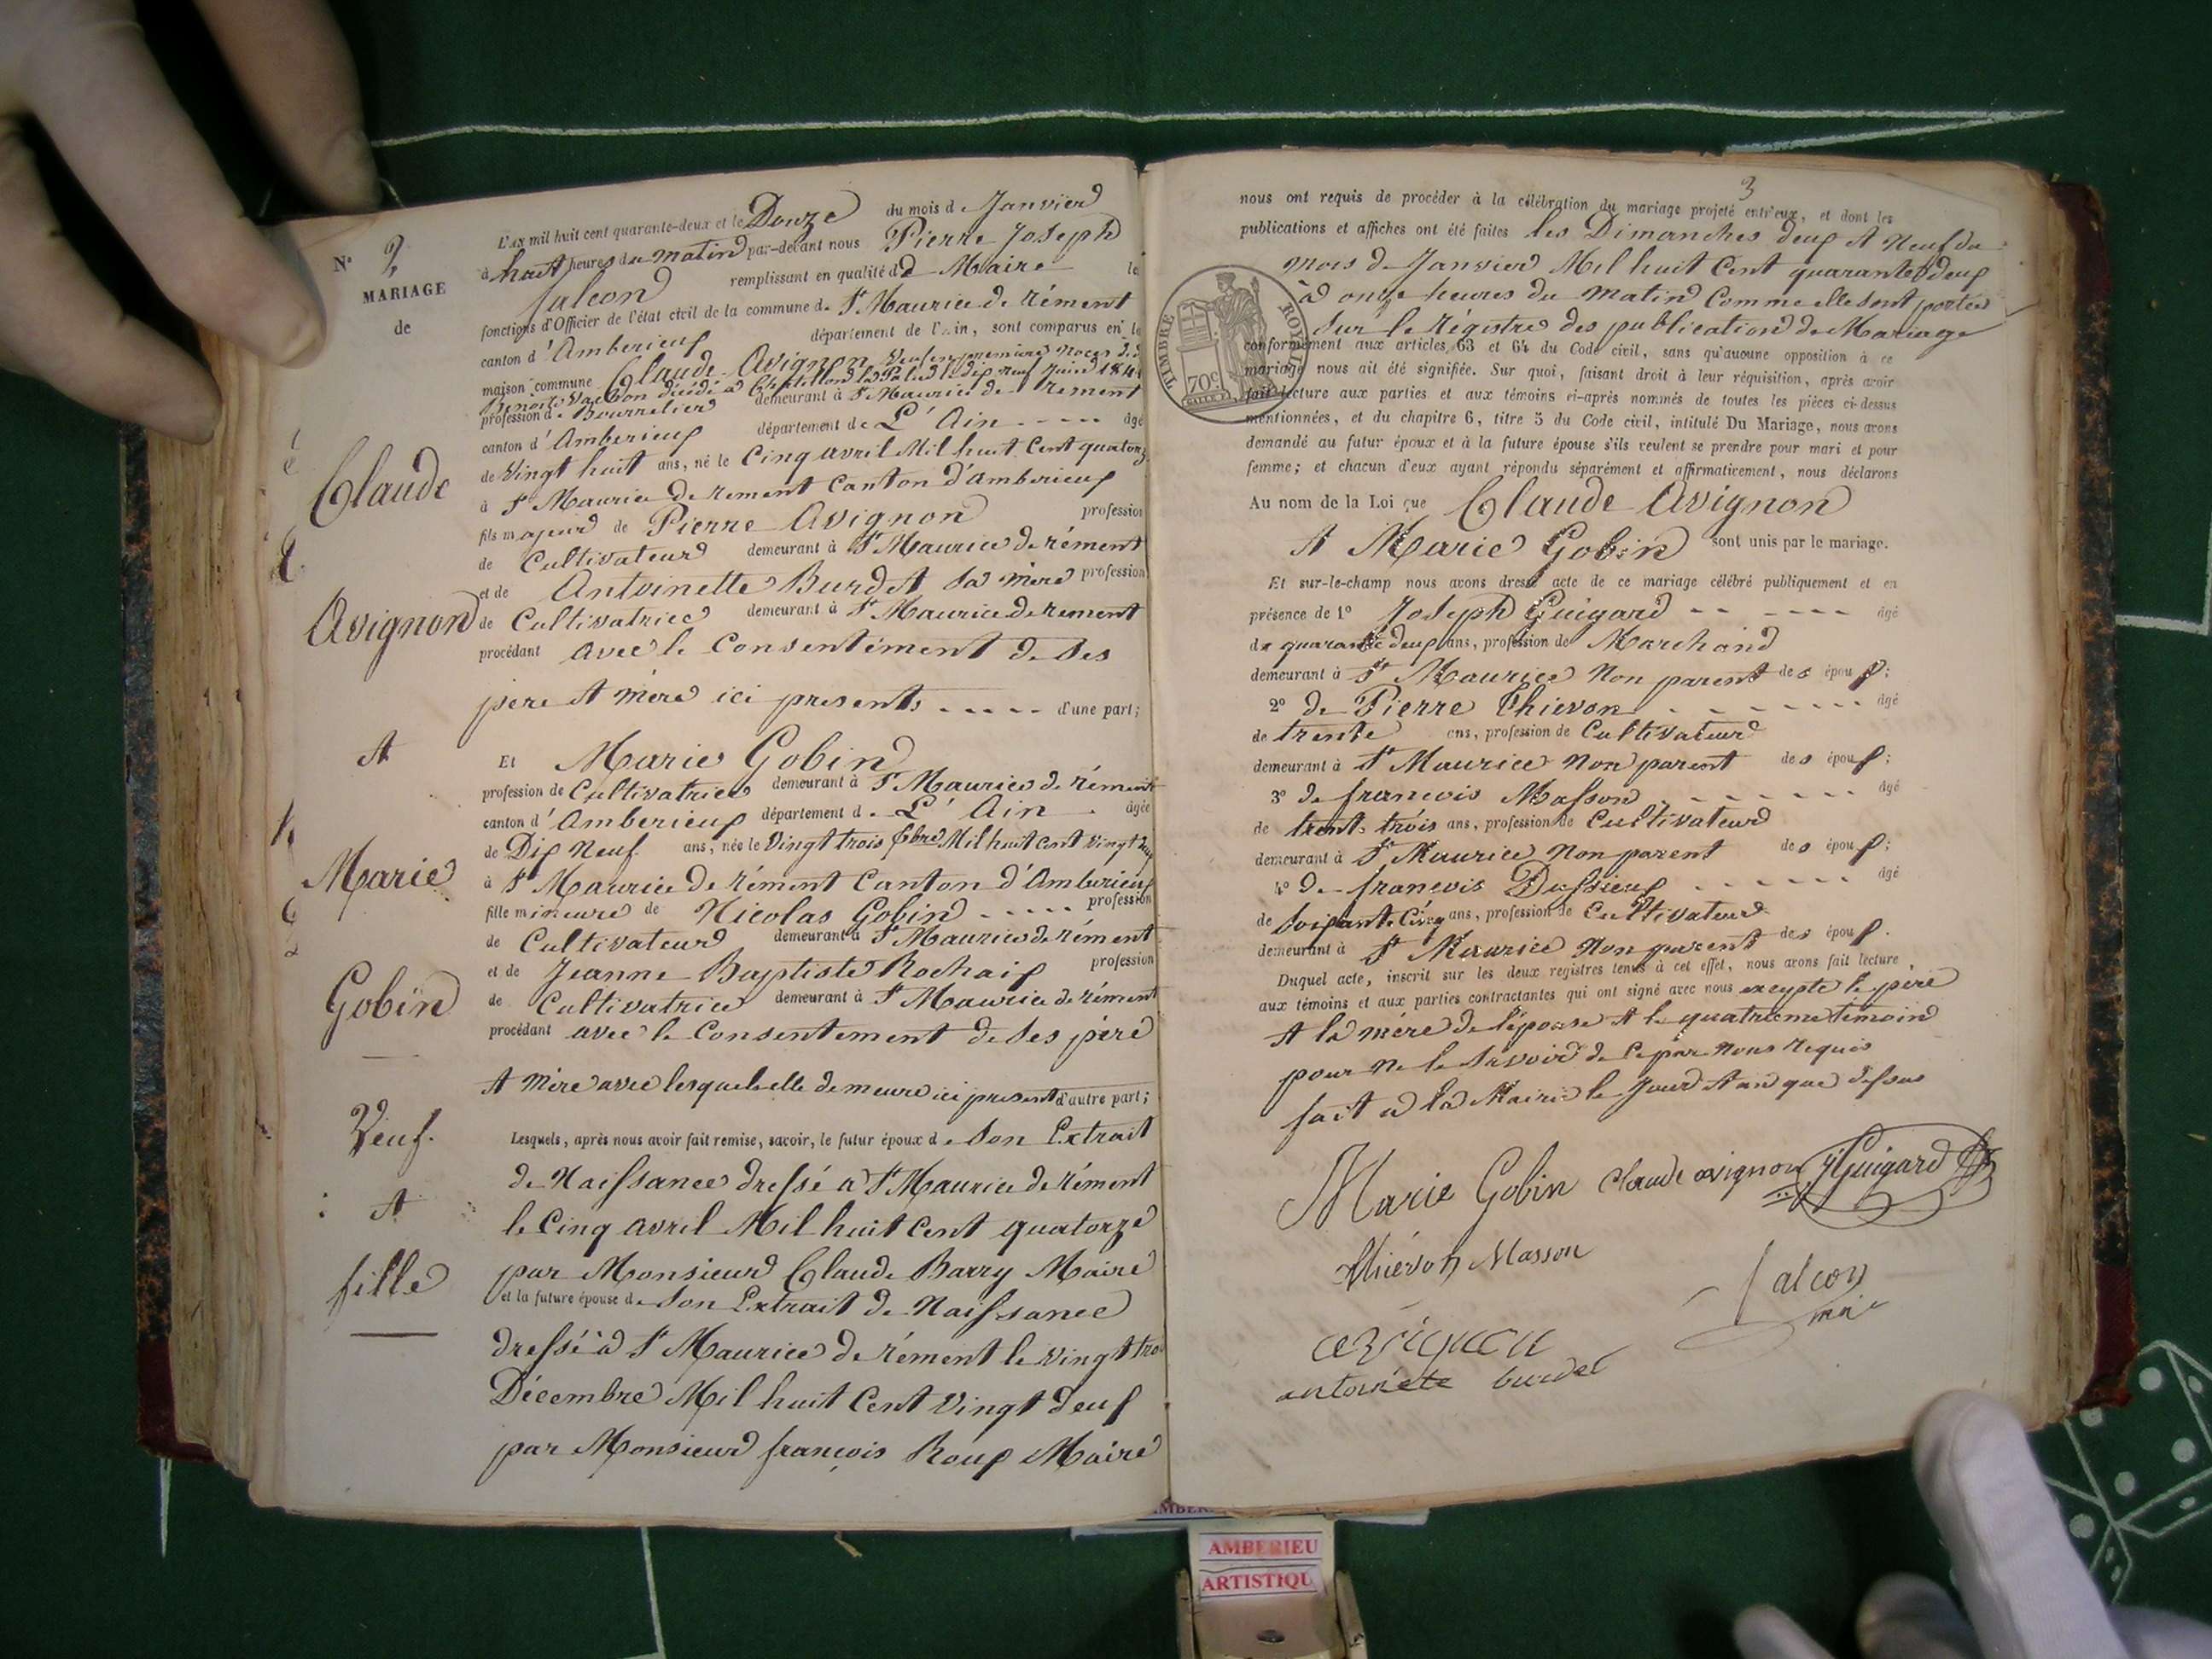 N° 2
MARIAGE
de
Claude
Avignon
et
Marie
Gobin
Veuf
et
fille
L'an mil huit cent quarante-deux et le Douze du mois d Janvier
à huit heures du matin par-devant nous Pierre Joseph
falcon remplissant en qualité d de Maire les
fonctions d'Officier de l'état civil de la commune de St Maurice de rément
canton d'Amberieux département de l'Ain, sont comparus en la
maison commune Claude Avignon, Veuf en premiere noces de
Benoite décédé à Chatillon la Palud le dix neuf Juin 1841
profession de Bourrelier demeurant à St Maurice de rément
canton d'Amberieux département de L'Ain - - - - âgé
de Vingt huit ans, né le Cinq avril Mil huit Cent quatorze
à St Maurice de rement Canton d'amberieux
fils majeur de Pierre Avignon profession
de Cultivateur demeurant à St Maurice de rément
et de Antoinette Burdet sa mère profession
de Cultivatrice demeurant à St Maurice de rement
procédant avec le Consentement de ses
pere et mère ici presents - - - - - d'une part;
Et Marie Gobin
profession de Cultivatrice demeurant à St Maurice de rément
canton d'Amberieux département d. L'Ain. âgée
de Dix Neuf ans, née le Vingt trois Xbre Mil huit Cent Vingt deux
à St Maurice de rément Canton d'Amberieux
fille mineure de Nicolas Gobin - - - - - profession
de Cultivateur demeurant à St Maurice de rément
et de Jeanne Baptiste Rochaix profession
de Cultivatrice demeurant à St Maurice de rément
procédant avec le Consentement de ses père
et Mère avec lesquels elle demeure ici present d'autre part;
Lesquels, après nous avoir fait remise, savoir, le futur époux de son Extrait
de Naissance dressé à St Maurice de rément
le Cinq avril Mil huit Cent quatorze
par Monsieur Claude Barry Maire
et la future épouse de son Extrait de Naissance
dressé à St Maurice de rément le vingt trois
Décembre Mil huit Cent Vingt deux
par Monsieur françois Roux Maire
3
nous ont requis de procéder à la célébration du mariage projeté entr'eux, et dont les
publications et affiches ont été faites les Dimanches deux et Neuf du
mois de Janvier Mil huit Cent quarante deux
à onze heures du matin Comme elle sont portées
sur le Régistre des publication de Mariage
conformément aux articles 63 et 64 du Code civil, sans qu'aucune opposition à ce
mariage nous ait été signifiée. Sur quoi, faisant droit à leur réquisition, après avoir
fait lecture aux parties et aux témoins ci-après nommés de toutes les pièces ci-dessus
mentionnées, et du chapitre 6, titre 5 du Code civil, intitulé Du Mariage, nous avons
demandé au futur époux et à la future épouse s'ils veulent se prendre pour mari et pour
femme; et chacun d'eux ayant répondu séparément et affirmativement, nous déclarons
Au nom de la Loi que Claude Avignon
et Marie Gobin sont unis par le mariage.
Et sur-le-champ nous avons dressé acte de ce mariage célébré publiquement et en
présence de 1° Joseph Guigard - - - - - - âgé
de quarante deux ans, profession de Marchand
demeurant à St Maurice Non parent des époux;
2° de Pierre Thievon - - - - - - - âgé
de trente ans, profession de Cultivateur
demeurant à St Maurice Non parent des époux;
3° de francois Masson - - - - - - - âgé
de trent trois ans, profession de Cultivateur
demeurant à St Maurice Non parent des époux;
4° de francois Dussieux - - - - - - âgé
de soixante Cinq ans, profession de Cultivateur
demeurant à St Maurice Non parent des époux.
Duquel acte, inscrit sur les deux registres tenus à cet effet, nous avons fait lecture
aux témoins et aux parties contractantes qui ont signé avec nous excepte le père
et la mère de l'épouse et le quatrieme témoin
pour ne le savoir de ce par Nous requis
fait à la Mairie le Jour et an que dessus
TIMBRE ROYAL
70c
Marie Gobin Claude avignon J Guigard
thiévon Masson
falcon
avignon
antoinete burdet
AMBERIEU
ARTISTIQU